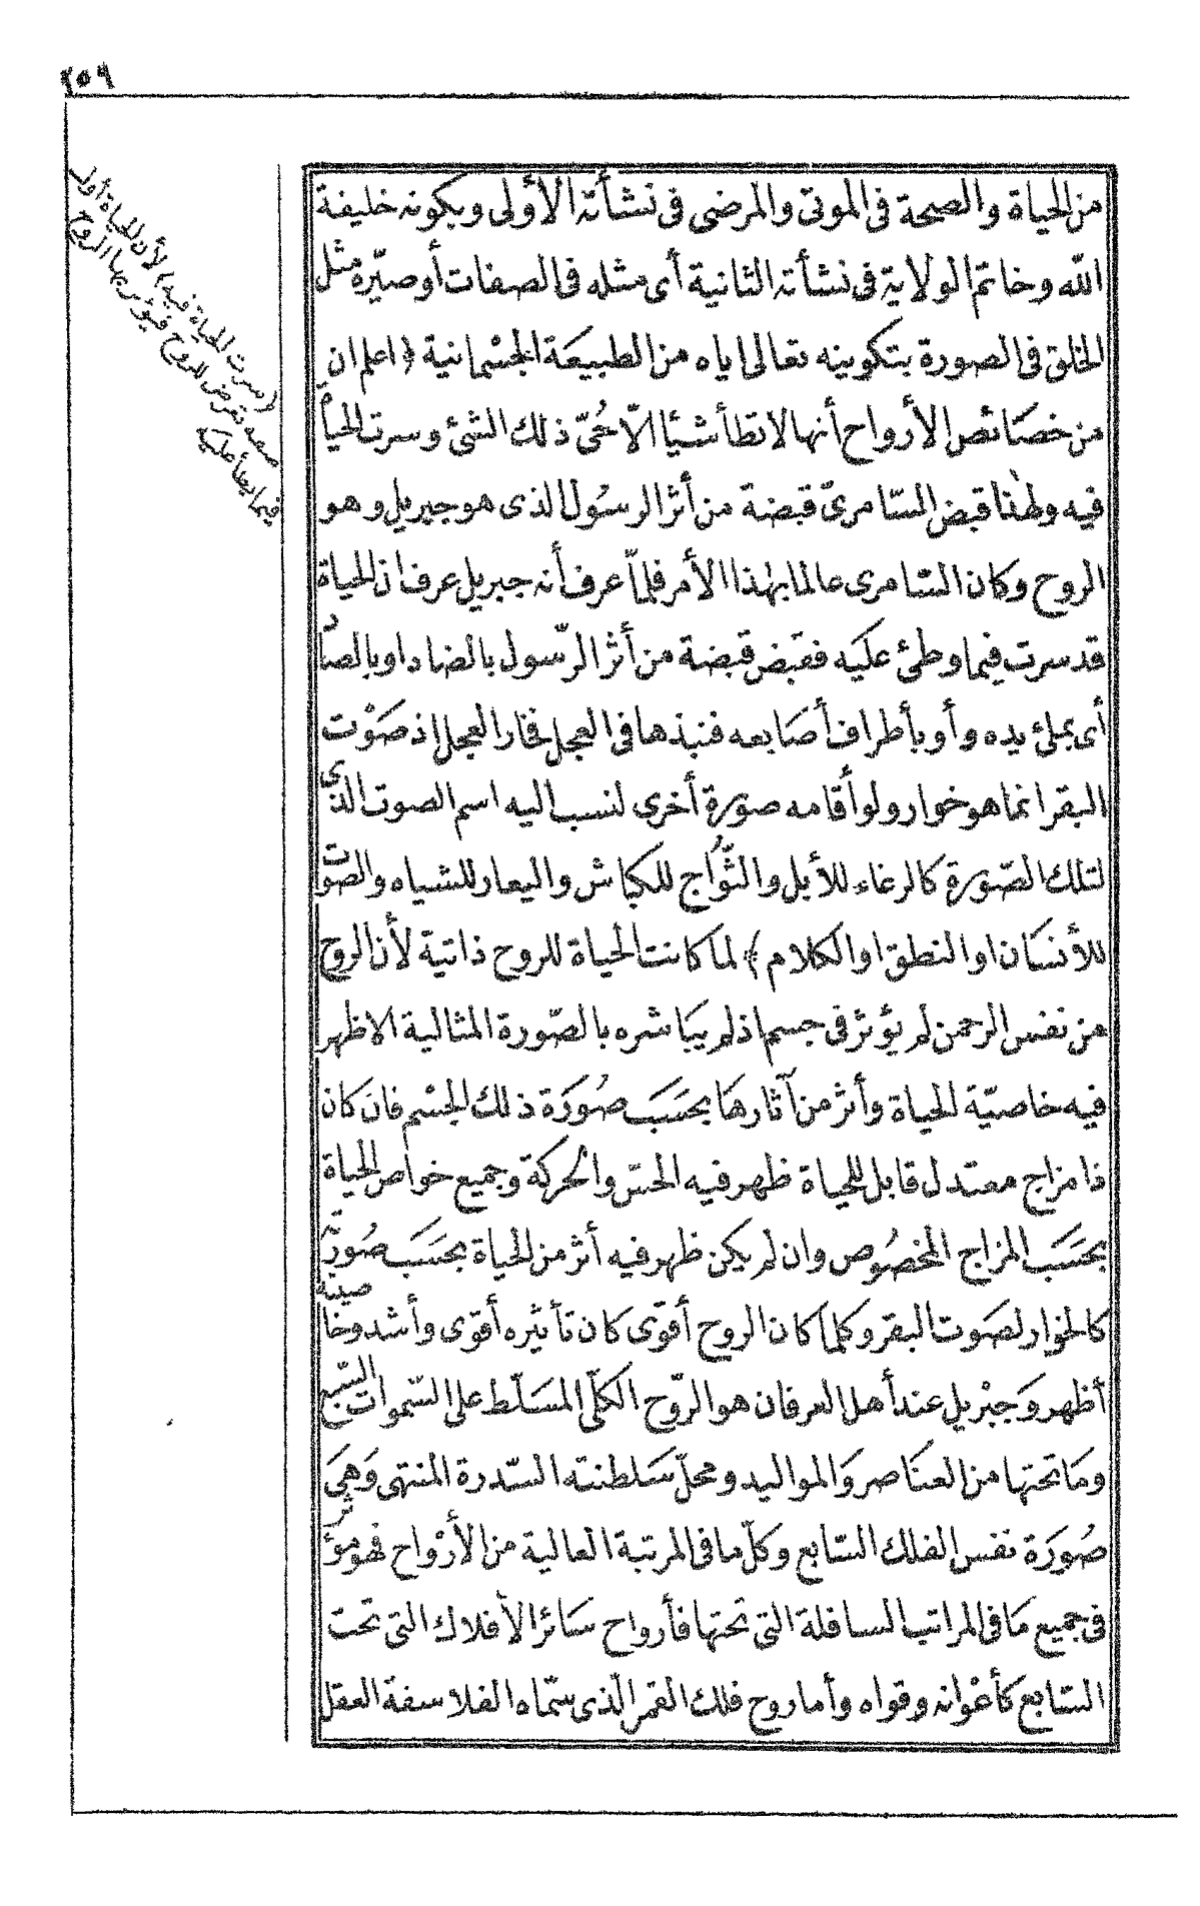 ٢٥٩
من الحياة والصحة في الموتى والمرضى في نشأته الأولى وبكونه خليفة
الله وخاتم الولاية في نشأته الثانية أي مثله في الصفات أو صيّره مثل
الخلق في الصورة بتكوينه تعالى اياه من الطبيعة الجسمانية ﴿ اعلم ان
من خصائص الأرواح أنها لا تطأ شيئا الّا حُيّ ذلك الشئ وسرت الحياة
فيه ولهذا قبض السّامريّ قبضة من أثر الرسول الذي هو جبريل وهو
الروح وكان السّامري عالما بهذا الأمر فلمّا عرف أنه جبريل عرف ان الحياة
قد سرت فيما وطئ عليه فقبض قبضة من أثر الرّسول بالضاد او بالصاد
أي بملئ يده وأو بأطراف أصابعه فنبذها في العجل فخار العجل اذ صَوْت
البقر انما هو خوار ولو أقامه صورة أخرى لنسب اليه اسم الصوت الذي
لتلك الصّورة كالرغاء للأبل والثُّؤاج للكباش واليعار للشياه والصوت
للأنسان او النطق او الكلام ﴾ لما كانت الحياة للروح ذاتية لأن الروح
من نفس الرحمن لم يؤثر في جسم اذ لم يباشره بالصّورة المثالية الا ظهر
فيه خاصيّة الحياة وأثر من آثارها بحسَب صُورَة ذلك الجسْم فان كان
ذا مزاج معتدل قابل للحياة ظهر فيه الحسّ والحركة وجميع خواص الحياة
بحسَب المزاج المخصُوص وان لم يكن ظهر فيه أثر من الحياة بحسَب صُورته
كالخوار لصَوت البقر وكلما كان الروح أقوى كان تأثيره أقوى وأشد وخاصيته
أظهر وَجبْريل عند أهل العرفان هو الرّوح الكلّي المسَلّط على السّموات السّبع
ومَا تحتها من العنَاصر وَالمواليد ومحلّ سَلطنته السّدرة المنتهى وَهيَ
صُورَة نفس الفلك السّابع وكلّ ما في المرتبة العالية من الأرْواح فهو مؤثر
في جميع مَا في المراتب السافلة التي تحتها فأرواح سَائر الأفلاك التي تحت
السّابع كأعْوانه وقواه وأما روح فلك القمر الّذي سمّاه الفلاسفة العقل
(سرت الحياة فيه) لأن الحياة أول
صفه تعرض للروح فيؤثر بها الروح
فيما يطأ عليه